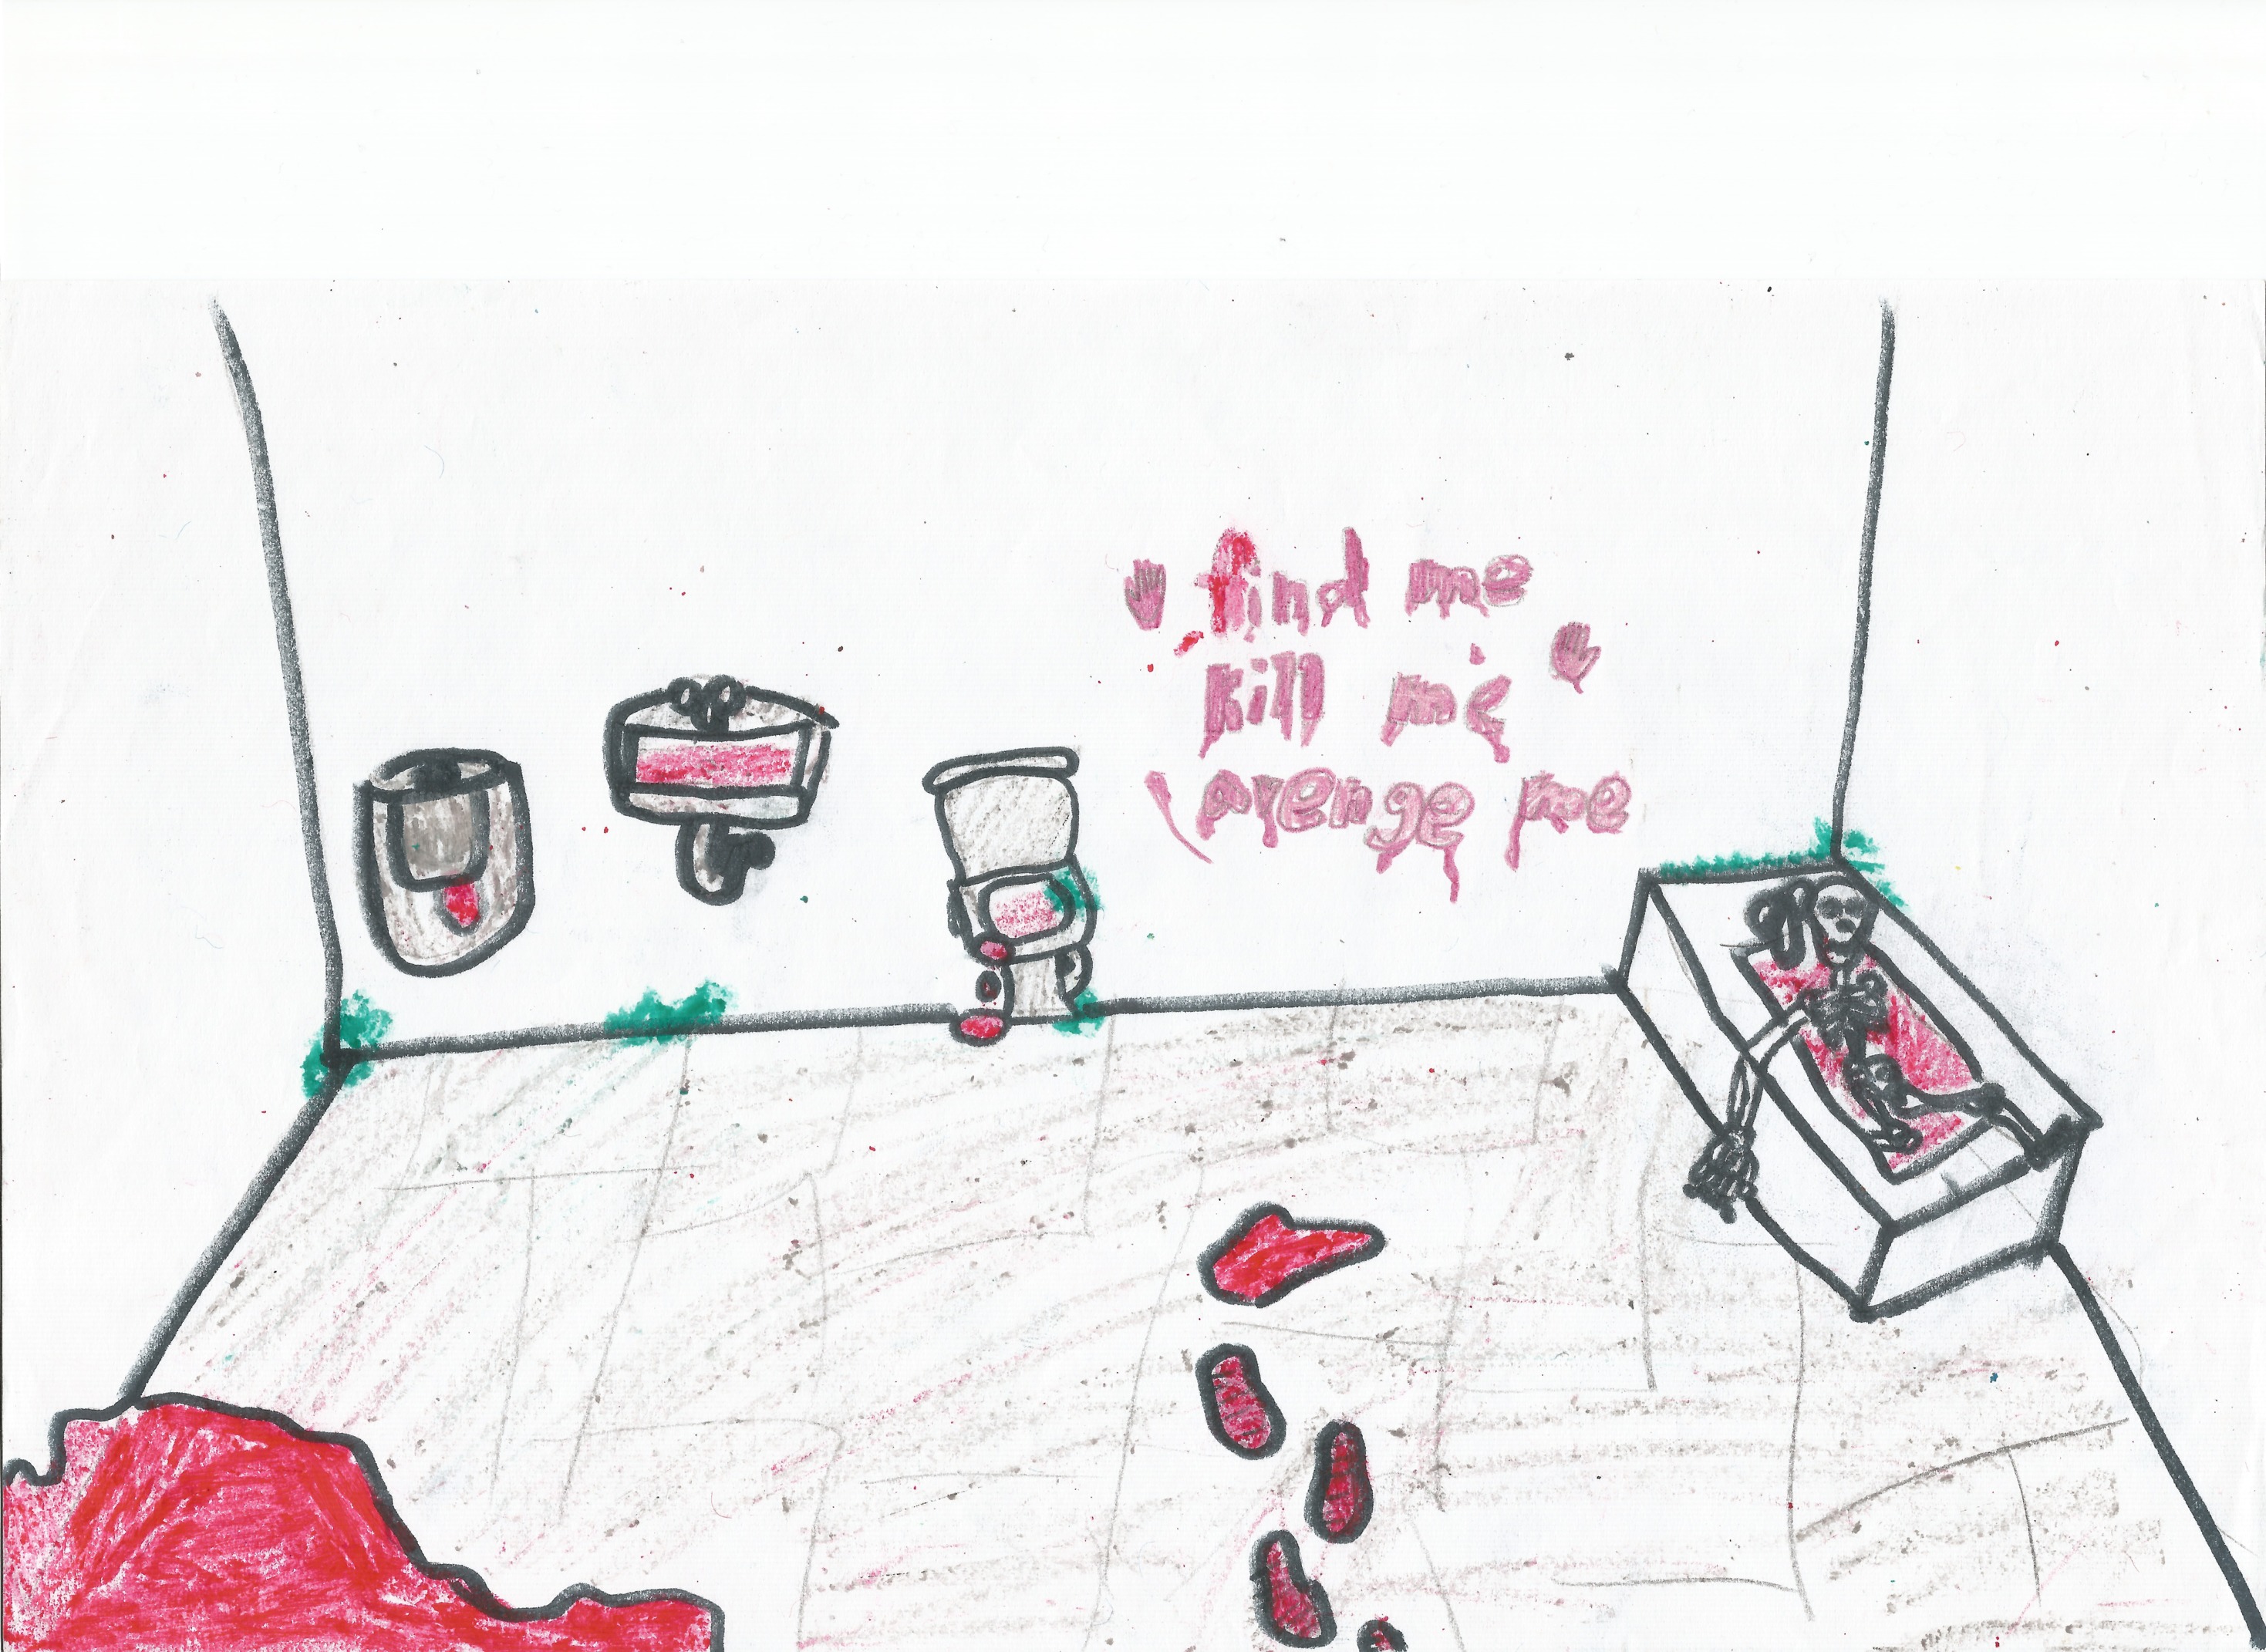 find me
kill me
avenge me